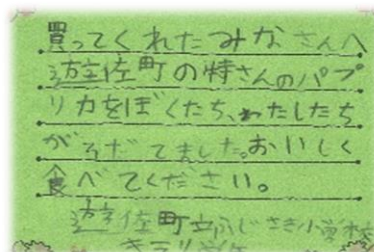 買ってくれたみなさんへ
遊佐町の特さんのパプ
リカをぼくたち、わたしたち
がそだてました。おいしく
食べてください。
遊佐町立ふじさき小学校